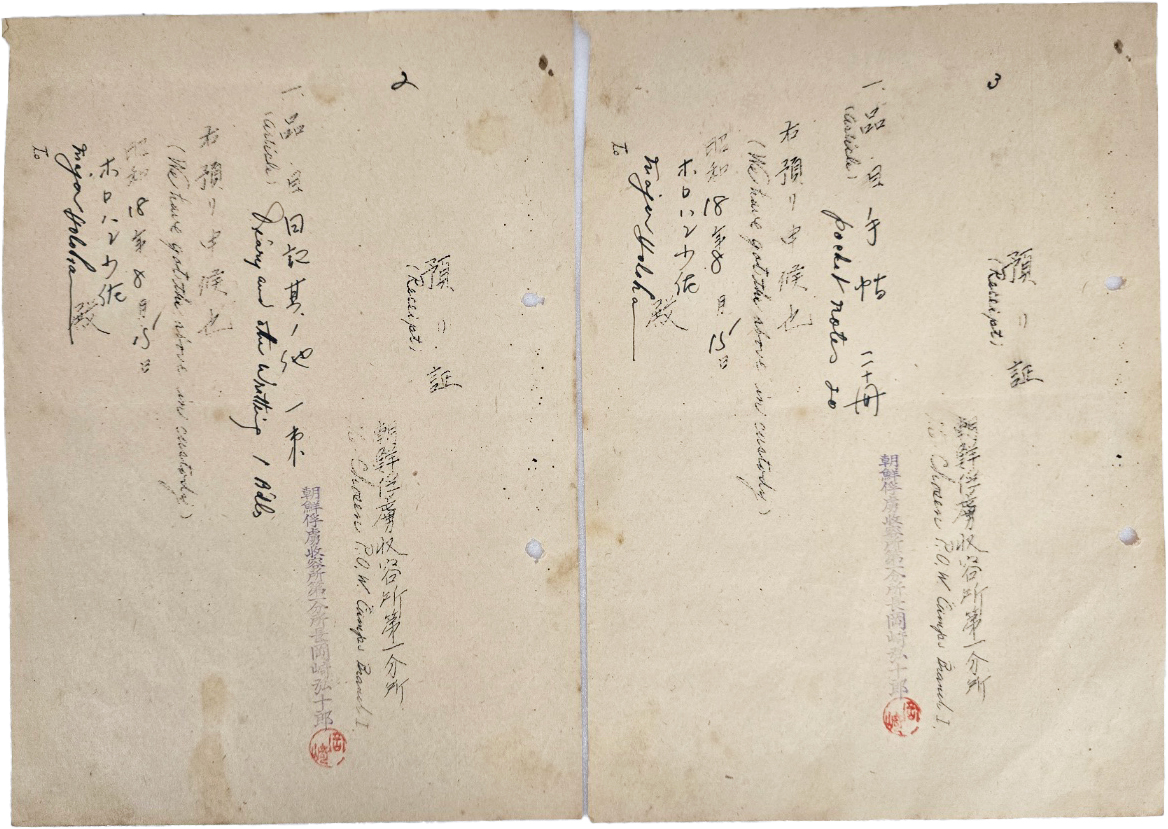 2
預リ証
(Receipt)
朝鮮俘虜収容所第一分所
Chosen P.O.W Camps Branch I.
朝鮮俘虜收容所第一分所長岡崎弘十郎
岡崎
一 品目 日記其ノ他 一束
(article) Diary and othr Writting 1 Bdls
右預リ申候也
(We have got the above in custody)
昭和18年8月15日
ホロハン少佐殿
To Major Holoha
3
預リ証
(Receipt)
朝鮮俘虜収容所第一分所
Chosen P.O.W Camps Branch I.
朝鮮俘虜收容所第一分所長岡崎弘十郎
岡崎
一 品目 手帖 二十冊
(article) pocket notes 20
右預リ申候也
(We have got the above in custody)
昭和18年8月15日
ホロハン少佐殿
To Major Holoha